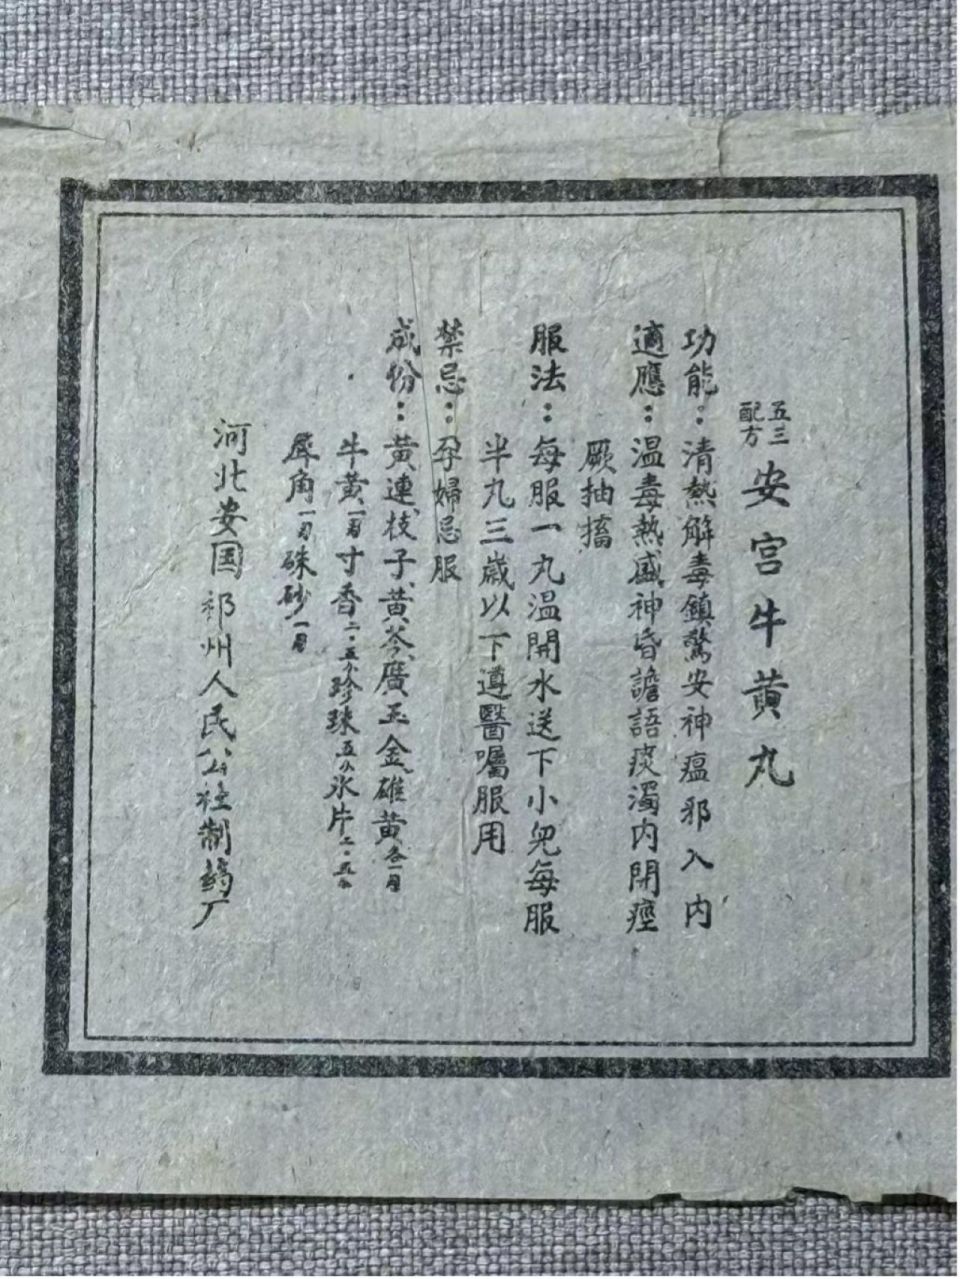 五三配方 安宫牛黄丸
功能：清熱解毒鎮驚安神瘟邪入内
適應：温毒熱盛神昏譫語痰濁内閉痙
厥抽搐
服法：每服一丸温開水送下小兒每服
半丸三歲以下遵醫囑服用
禁忌：孕婦忌服
成份：黄連、枝子、黄芩、廣玉金、雄黄各一两
牛黄一两寸香二·五分珍珠五分氷片二·五分
犀角一两硃砂一两
河北安国祁州人民公社制葯厂